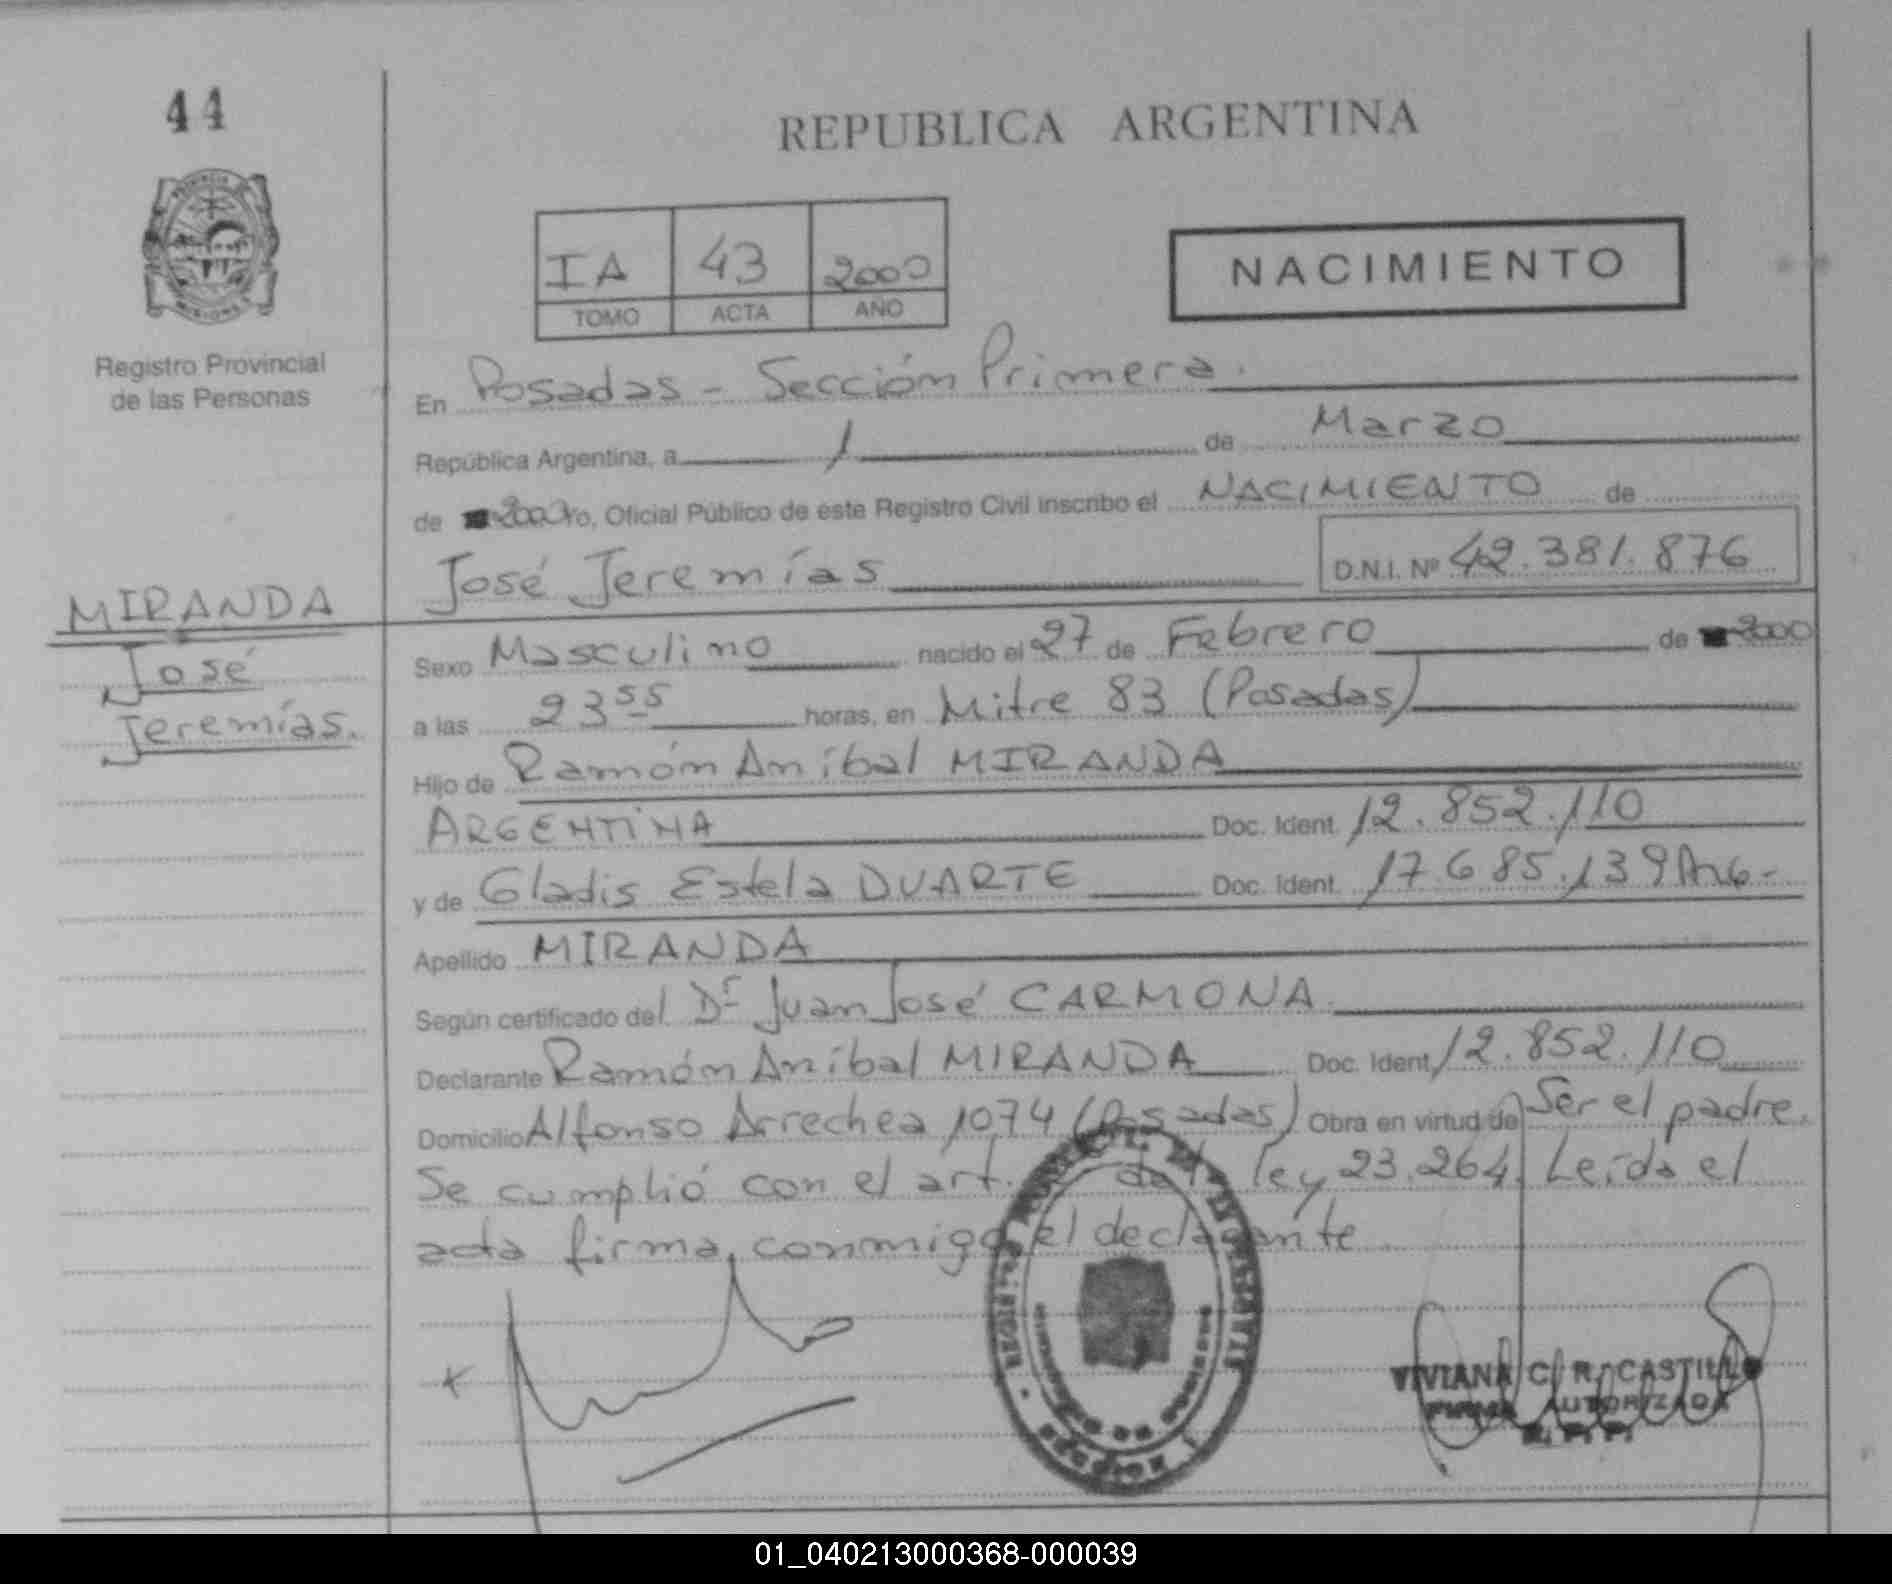 44
REPUBLICA ARGENTINA
IA 43 2000
TOMO ACTA AÑO
NACIMIENTO
Registro Provincial
de las Personas
En Posadas - Sección Primera.
República Argentina, a 1 de Marzo
de 2000 Yo, Oficial Público de este Registro Civil inscribo el NACIMIENTO de
José Jeremías D.N.I. Nº 42.381.876
MIRANDA
José
Jeremías.
Sexo Masculino nacido el 27 de Febrero de 2000
a las 23 55 horas, en Mitre 83 (Posadas)
Hijo de Ramón Aníbal MIRANDA
ARGENTINA Doc. Ident. 12.852.110
y de Gladis Estela DUARTE Doc. Ident. 17.685.139 Arg-
Apellido MIRANDA
Según certificado del Dr Juan José CARMONA.
Declarante Ramón Aníbal MIRANDA Doc. Ident. 12.852.110
Domicilio Alfonso Arrechea 1074 (Posadas) Obra en virtud de Ser el padre.
Se cumplió con el art. de ley 23.264. Leída el
acta firma conmigo el declarante
VIVIANA C. R. CASTILLO
FIRMA AUTORIZADA
01_040213000368-000039